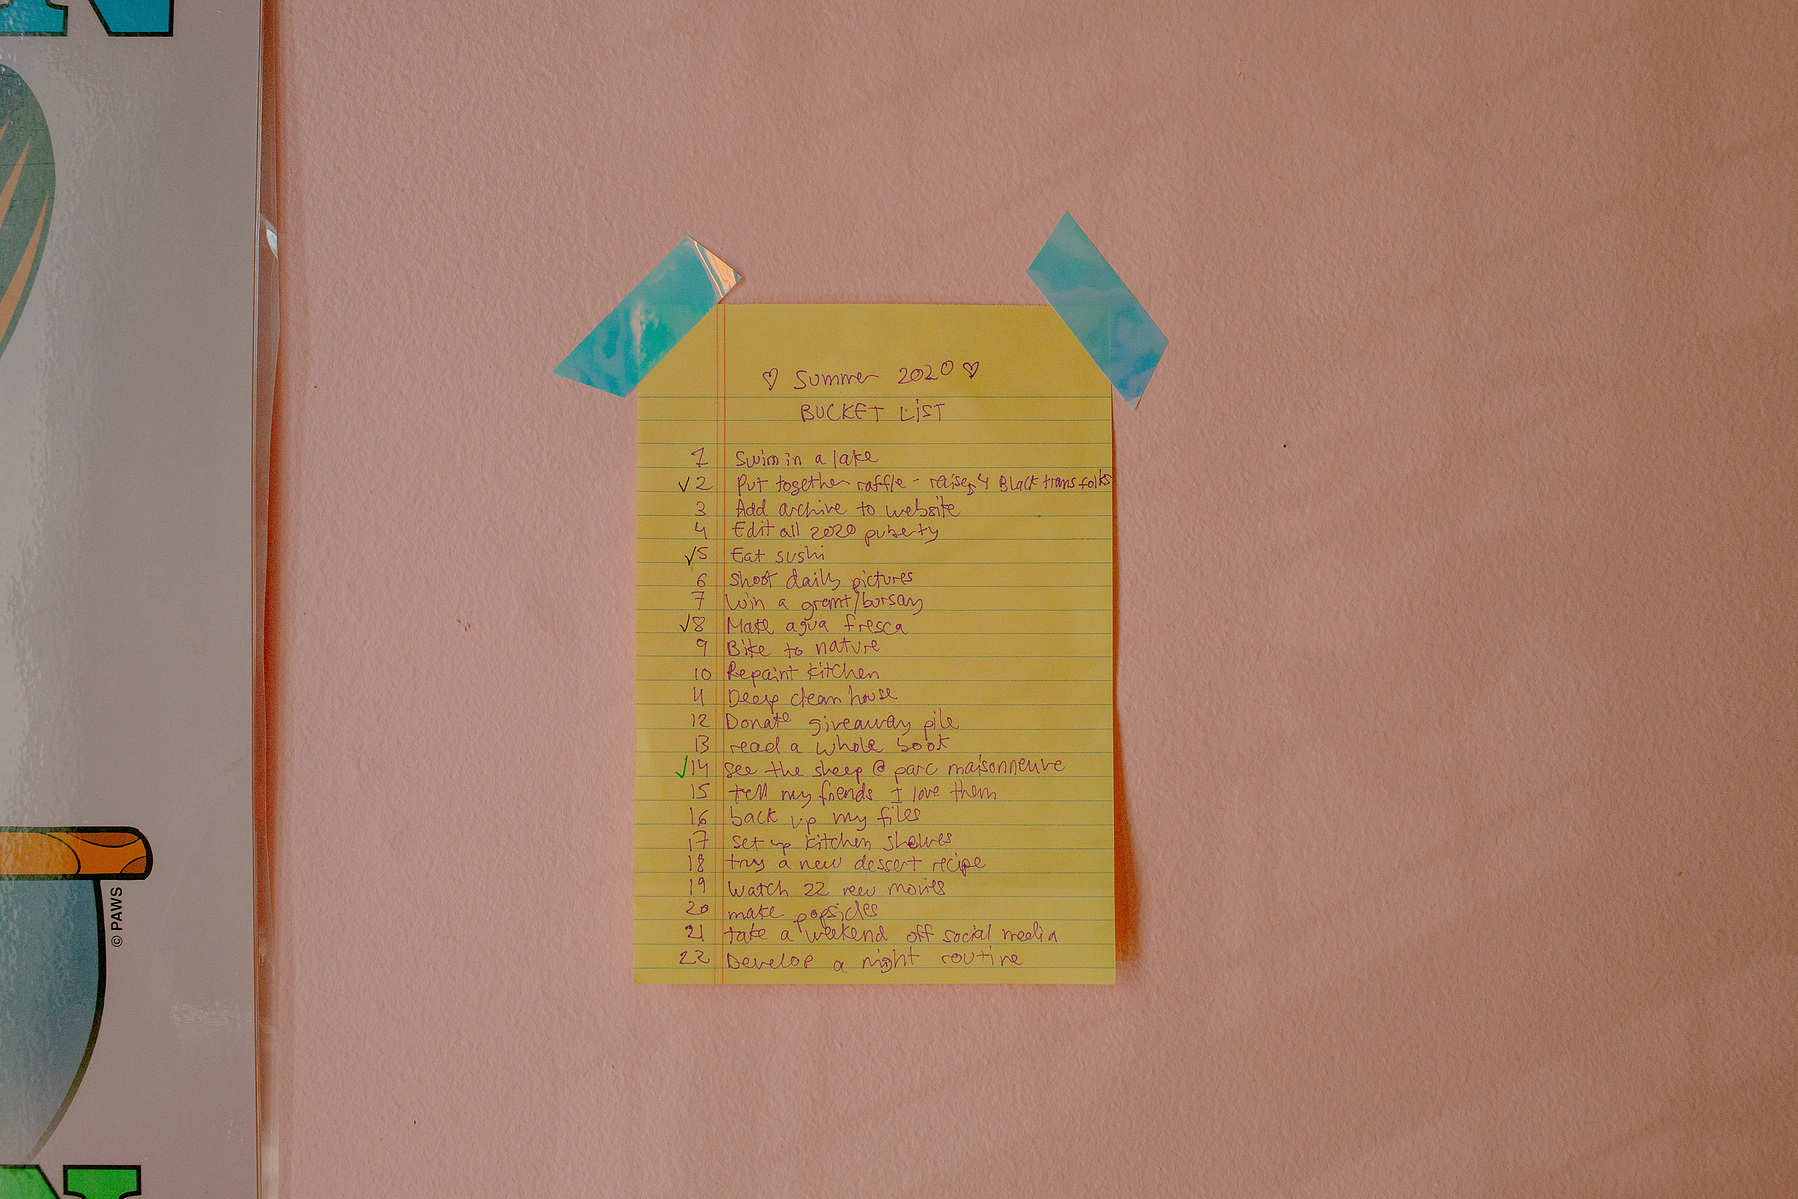 N
© PAWS
N
♡ Summer 2020 ♡
BUCKET LIST
1 Swim in a lake
✓2 Put together raffle - raise $ 4 Black trans folks
3 Add archive to website
4 Edit all 2020 puberty
✓5 Eat sushi
6 shoot daily pictures
7 Win a grant/bursary
✓8 Make agua fresca
9 Bike to nature
10 Repaint kitchen
11 Deep clean house
12 Donate giveaway pile
13 read a whole book
✓14 see the sheep @ parc maisonneuve
15 tell my friends I love them
16 back up my files
17 set up kitchen shelves
18 try a new dessert recipe
19 watch 22 new movies
20 make popsicles
21 take a weekend off social media
22 Develop a night routine